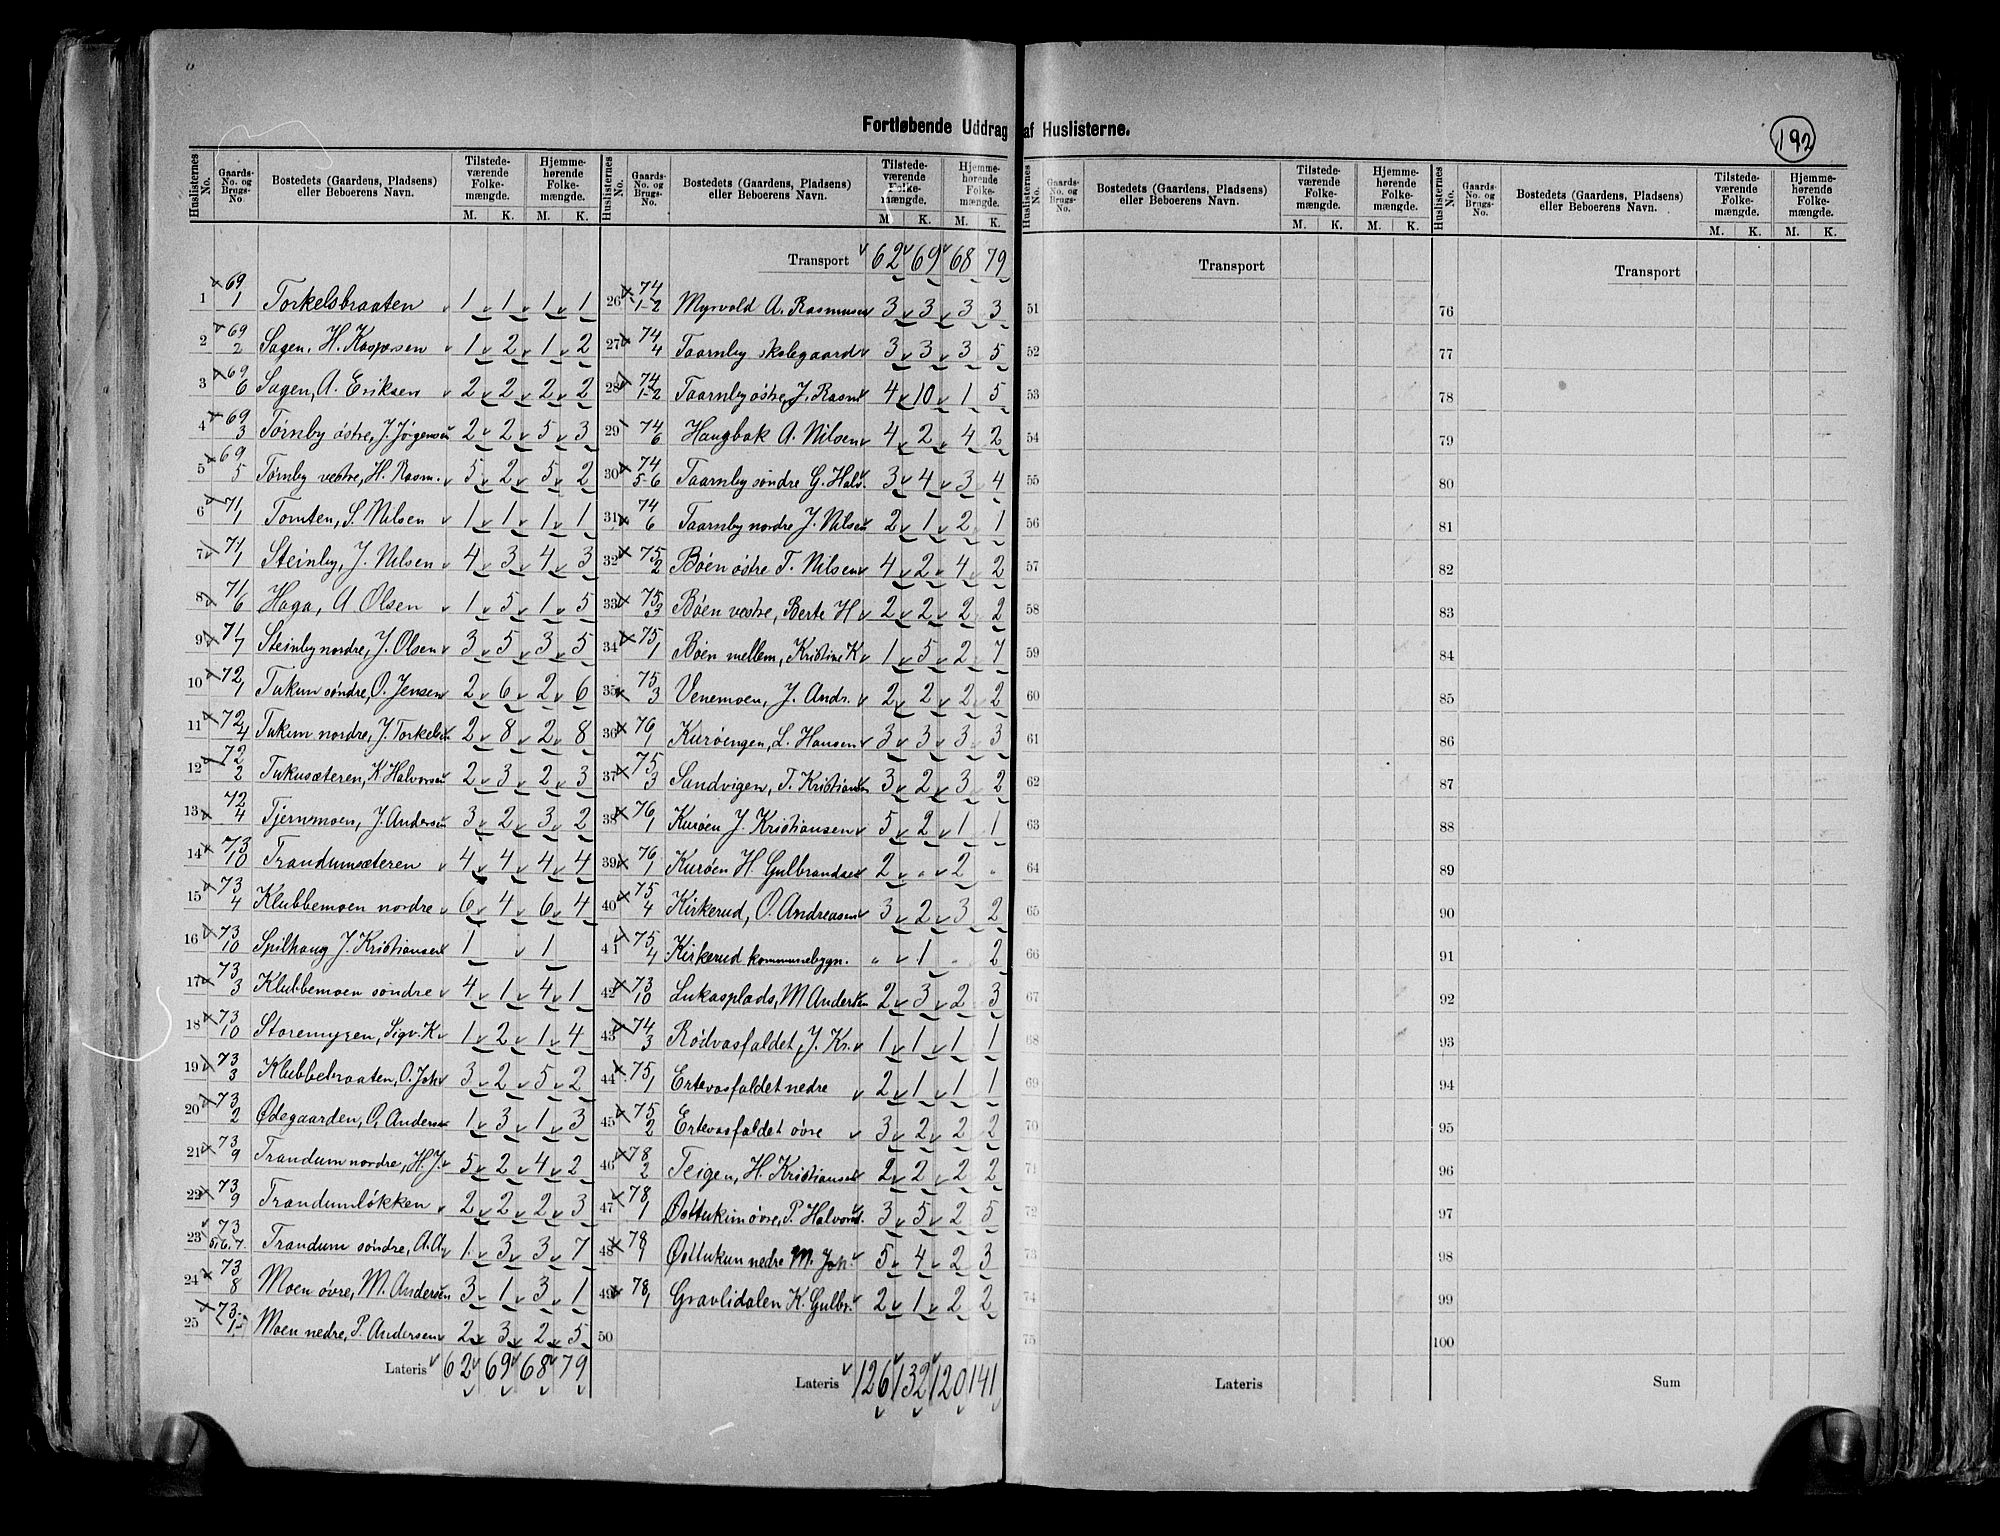 192
Fortløbende Uddrag af Huslisterne.
Huslisternes No. | Gaards-No. og Brugs-No | Bostedets (Gaardens, Pladsens) eller Beboerens Navn. | Tilstedeværende Folkemængde. M. K. | Hjemmehørende Folkemængde. M. K.
1 69/1 Torkelsbraaten 1 1 1 1
2 69/2 Sagen, H. Kaspersen 1 2 1 2
3 69/6 Sagen, A. Eriksen 2 2 2 2
4 69/3 Tørnby østre, J. Jørgensen 2 2 5 3
5 69/5 Tørnby vestre, H. Rasm. 5 2 5 2
6 71/1 Tomten, S. Nilsen 1 1 1 1
7 71/1 Steinby, J. Nilsen 4 3 4 3
8 71/6 Haga, A Olsen 1 5 1 5
9 71/7 Steinby nordre, J. Olsen 3 5 3 5
10 72/1 Tukun søndre, O. Jensen 2 6 2 6
11 72/4 Tukun nordre, J. Torkelsen 2 8 2 8
12 72/2 Tukusæteren, K Halvorsen 2 3 2 3
13 72/4 Tjernsmoen, J. Andersen 3 2 3 2
14 73/10 Trandumsæteren 4 4 4 4
15 73/4 Klubbemoen nordre 6 4 6 4
16 73/10 Spilhaug J. Kristiansen 1 1
17 73/3 Klubbemoen søndre 4 1 4 1
18 73/10 Storemyren, Sigv. K 1 2 1 4
19 73/3 Klubbebraaten, O. Joh 3 2 5 2
20 73/2 Ødegaarden, O, Anders 1 3 1 3
21 73/9 Trandum nordre, H. J. 5 2 4 2
22 73/9 Trandumløkken 2 2 2 3
23 73/5.6.7. Trandum søndre, A. A. 1 3 3 7
24 73/8 Moen øvre, M. Andersen 3 1 3 1
25 73/1 Moen nedre, P. Andersen 2 3 2 5
Lateris 62 69 68 79
Huslisternes No. | Gaards-No. og Brugs-No. | Bostedets (Gaardens, Pladsens) eller Beboerens Navn. | Tilstedeværende Folkemængde. M. K. | Hjemmehørende Folkemængde. M. K.
Transport 62 69 68 79
26 74/1-2 Myrvold A. Rasmusen 3 3 3 3
27 74/4 Taarnby skolegaard 3 3 3 5
28 74/1-2 Taarnby østre, J. Rasm 4 10 1 5
29 74/6 Haugbak A. Nilsen 4 2 4 2
30 74/5-6 Taarnby søndre G. Halv. 3 4 3 4
31 74/6 Taarnby nordre J. Nilsen 2 1 2 1
32 75/2 Bøen østre T. Nilsen 4 2 4 2
33 75/3 Bøen vestre, Berte H 2 2 2 2
34 75/1 Bøen mellem, Kristine K 1 5 2 7
35 75/3 Venemoen, J. Andr. 2 2 2 2
36 76/1 Kurøengen, L. Hansen 3 3 3 3
37 75/3 Sandvigen, T. Kristiansen 3 2 3 2
38 76/1 Kurøen J. Kristiansen 5 2 1 1
39 76/1 Kurøen H. Gulbrandsen 2 " 2 "
40 75/4 Kirkerud, O. Andreasen 3 2 3 2
41 75/4 Kirkerud kommunebygn. " 1 " 2
42 73/10 Lukasplads, M Andersen 2 3 2 3
43 74/3 Rødvasfaldet, J. Kr. 1 1 1 1
44 75/1 Ertevasfaldet nedre 2 1 1 1
45 75/2 Ertevasfaldet øvre 3 2 2 2
46 78/2 Teigen, H. Kristiansen 2 2 2 2
47 78/1 Østtukun øvre, P. Halvors. 3 5 2 5
48 78/1 Østtukun nedre M. Joh. 5 4 2 3
49 78/1 Gravlidalen K. Gulbr. 2 1 2 2
50
Lateris 126 132 120 141
Huslisternes No. | Gaards-No. og Brugs-No. | Bostedets (Gaardens, Pladsens) eller Beboerens Navn. | Tilstedeværende Folkemængde. M. K. | Hjemmehørende Folkemængde. M. K.
Transport
51
52
53
54
55
56
57
58
59
60
61
62
63
64
65
66
67
68
69
70
71
72
73
74
75
Lateris
Huslisternes No. | Gaards-No. og Brugs-No. | Bostedets (Gaardens, Pladsens) eller Beboerens Navn. | Tilstedeværende Folkemængde. M. K. | Hjemmehørende Folkemængde. M. K.
Transport
76
77
78
79
80
81
82
83
84
85
86
87
88
89
90
91
92
93
94
95
96
97
98
99
100
Sum